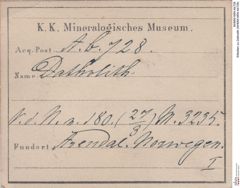 K. K. Mineralogisches Museum.
Acq. Post A.b.728.
Name: Datholith.
V. d. N. n. 180. (27/3) M. 3235.
Fundort: Arendal, Norwegen.
I